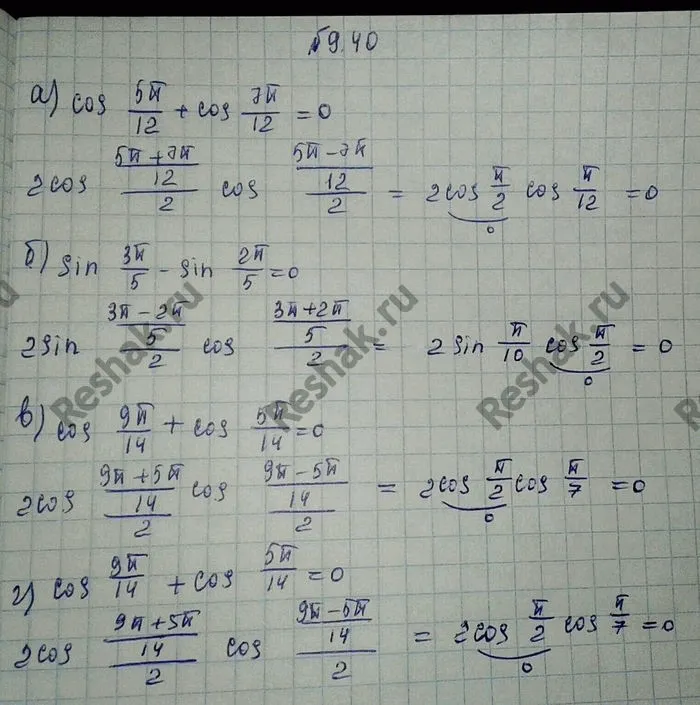 §9.40
а) cos 5π/12 + cos 7π/12 = 0
2cos ((5π+7π)/12)/2 cos ((5π-7π)/12)/2 = 2cos π/2 cos π/12 = 0
0
б) sin 3π/5 - sin 2π/5 = 0
2sin ((3π-2π)/5)/2 cos ((3π+2π)/5)/2 = 2 sin π/10 cos π/2 = 0
0
в) cos 9π/14 + cos 5π/14 = 0
2cos ((9π+5π)/14)/2 cos ((9π-5π)/14)/2 = 2cos π/2 cos π/7 = 0
0
г) cos 9π/14 + cos 5π/14 = 0
2cos ((9π+5π)/14)/2 cos ((9π-5π)/14)/2 = 2cos π/2 cos π/7 = 0
0
Reshak.ru
Reshak.ru